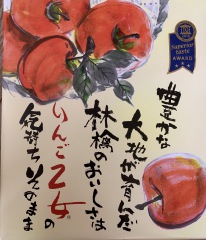 豊かな
大地が育んだ
林檎のおいしさは
りんご乙女®の
気持ちそのまま
Superior
taste
AWARD